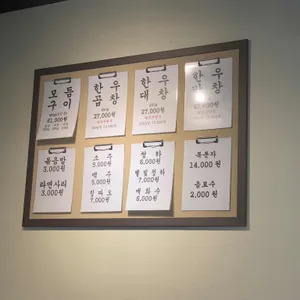 모듬
구이
한우
곱창
27,000원
한우
대창
27,000원
한우
막창
27,000원
볶음밥
3,000원
라면사리
3,000원
소주
5,000원
맥주
5,000원
칭따오
7,000원
청하
6,000원
별빛청하
7,000원
매화수
6,000원
복분자
14,000원
음료수
2,000원